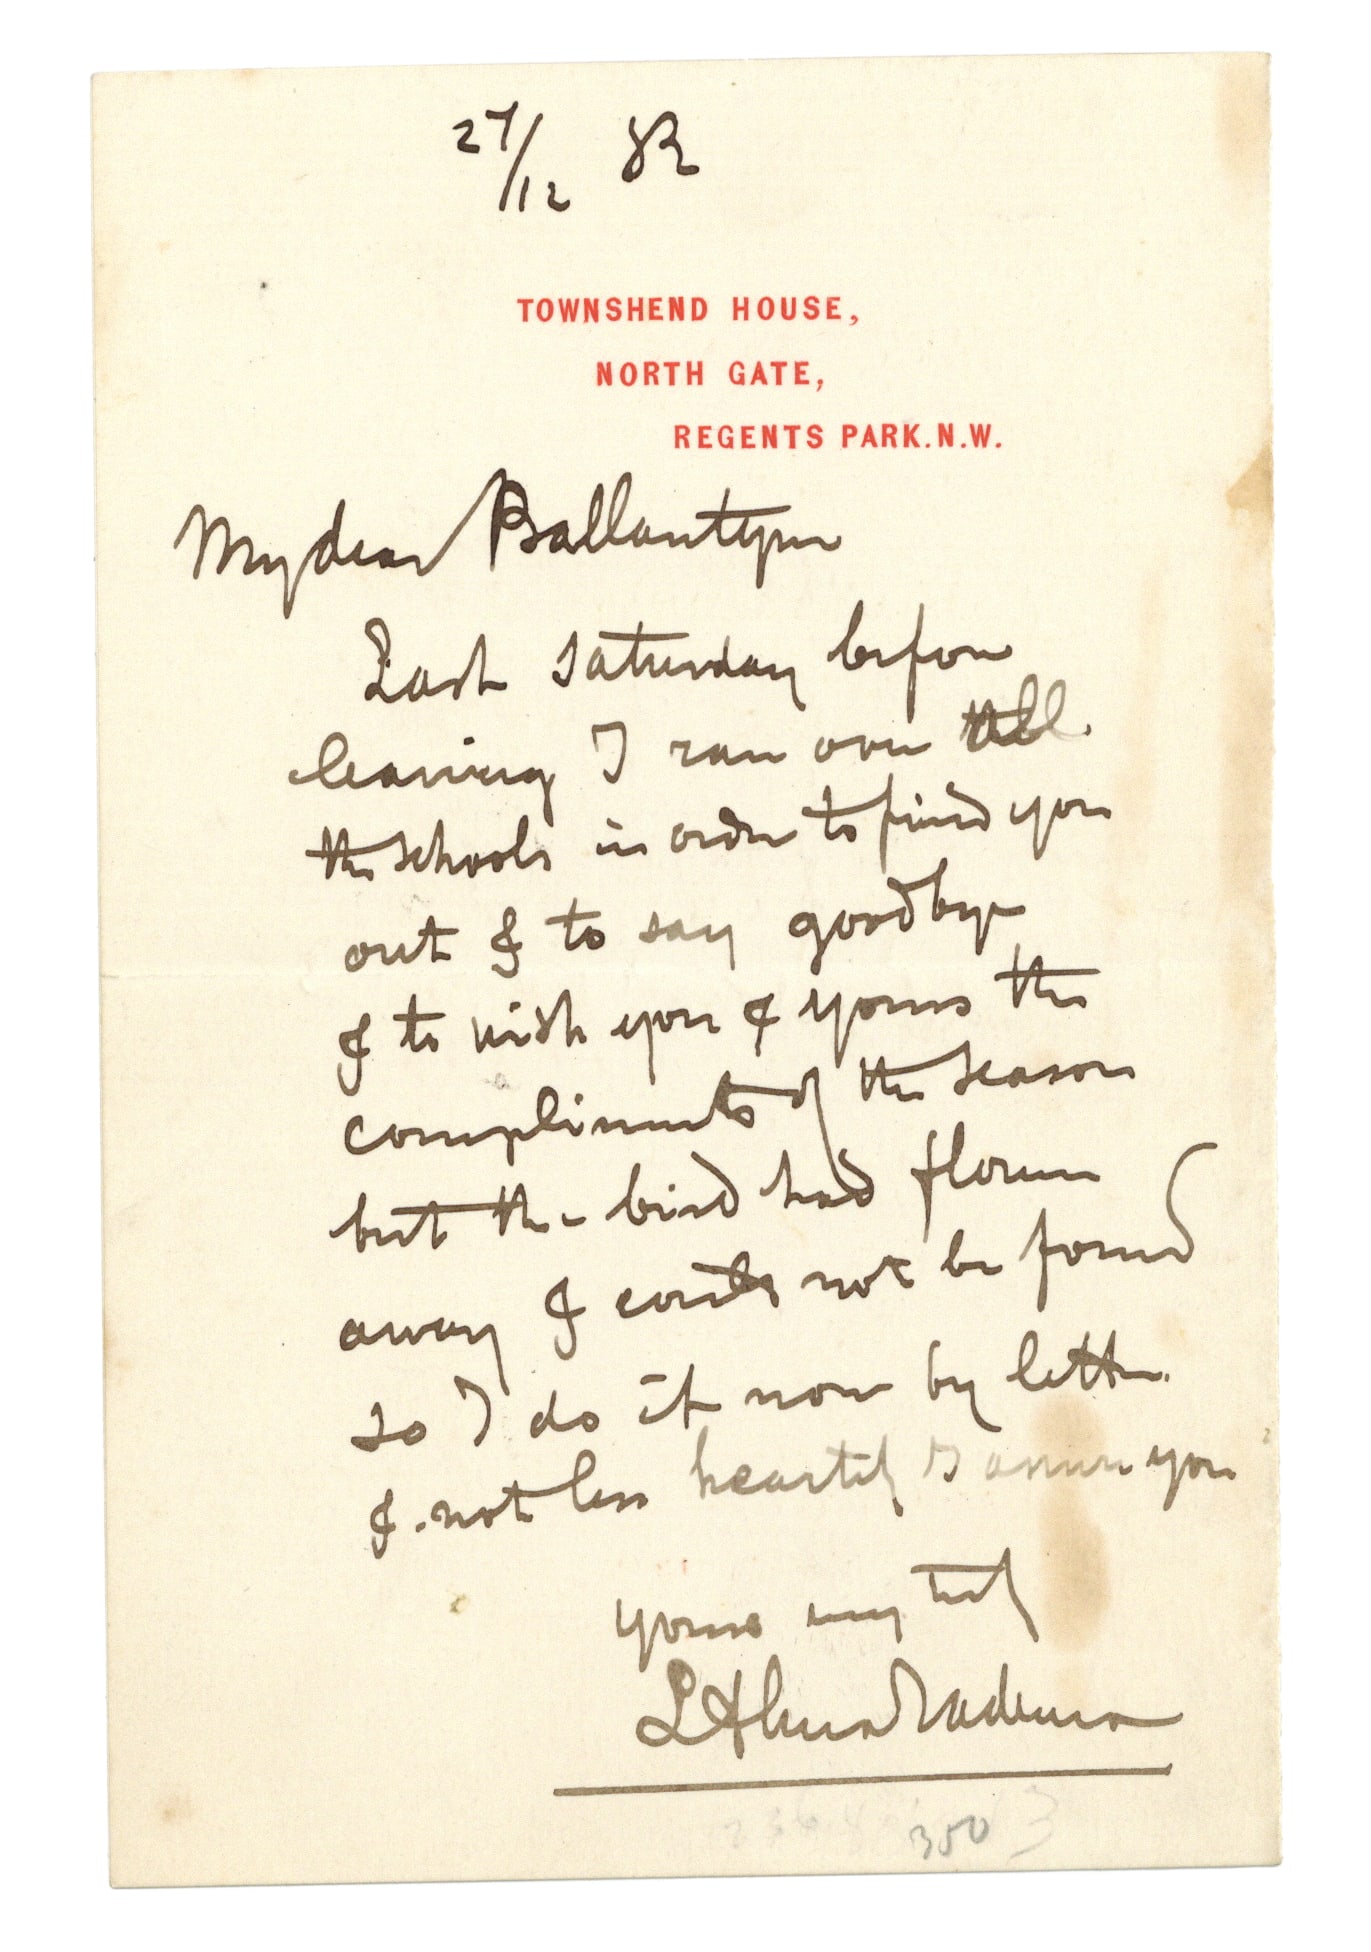 27/12 82
TOWNSHEND HOUSE,
NORTH GATE,
REGENTS PARK.N.W.
My dear Ballantyne
Last Saturday before
leaving I ran over
the schools in order to find you
out & to say goodbye
& to wish you & yours the
compliments of the season
but the bird had flown
away & could not be found
so I do it now by letter.
& not less heartily I assure you
yours very truly
L Alma Tadema
350